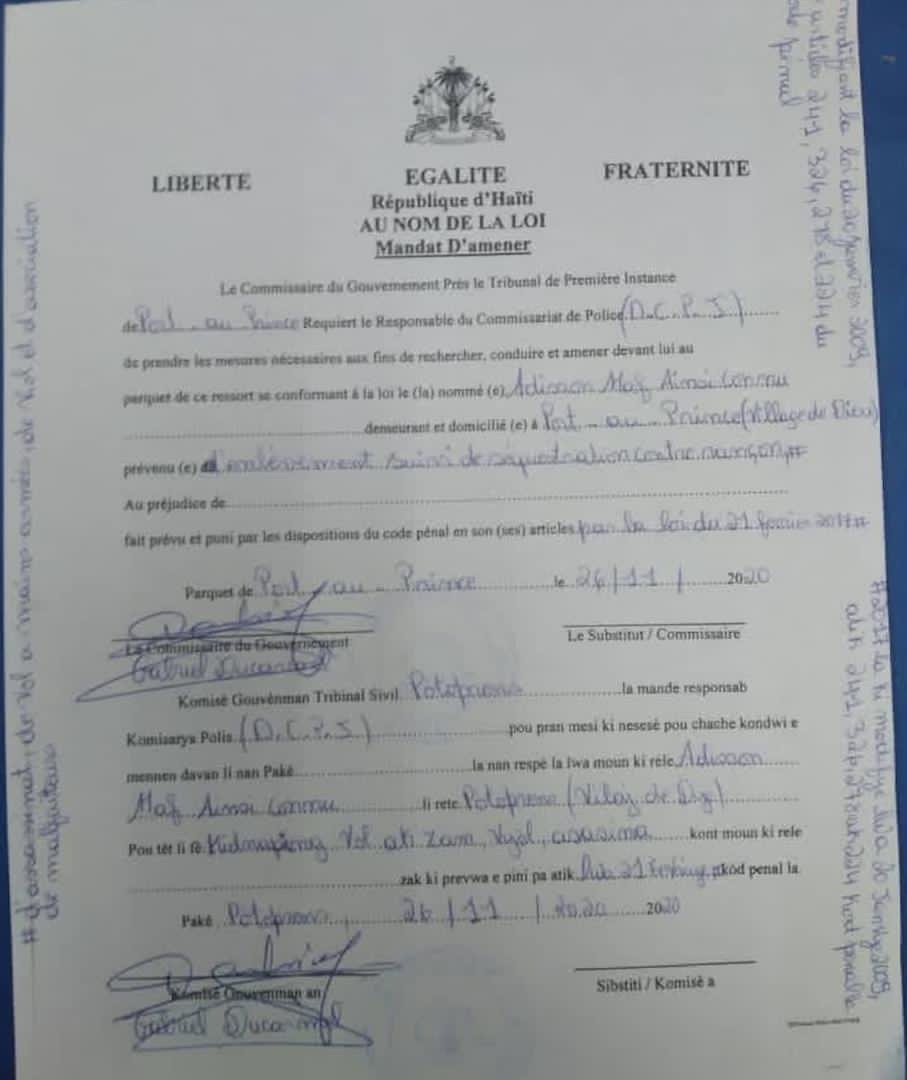 LIBERTE
EGALITE
FRATERNITE
République d'Haïti
AU NOM DE LA LOI
Mandat D'amener
Le Commissaire du Gouvernement Près le Tribunal de Première Instance
de Port-au-Prince Requiert le Responsable du Commissariat de Police (D.C.P.J)
de prendre les mesures nécessaires aux fins de rechercher, conduire et amener devant lui au
parquet de ce ressort se conformant à la loi le (la) nommé (e) Adisson Maf Ainsi Connu
demeurant et domicilié (e) à Port-au-Prince (Village de Dieu)
prévenu (e) d'enlèvement suivi de séquestration contre rançon, #
Au préjudice de
fait prévu et puni par les dispositions du code pénal en son (ses) articles par la loi du 21 février 2017 #
Parquet de Port-au-Prince le 26/11/2020
Le Commissaire du Gouvernement
Le Substitut / Commissaire
Gabriel Ducarmel
Komisè Gouvènman Tribinal Sivil Potoprens la mande responsab
Komisarya Polis (D.C.P.J) pou pran mesi ki nesesé pou chache kondwi e
mennen davan li nan Paké la nan respè la lwa moun ki rele Adisson
Maf Ainsi Connu li rete Potoprens (Vilaj de Dye)
Pou tèt li fè Kidnaping, Vol ak Zam, Vyol, asasina kont moun ki rele
zak ki prevwa e pini pa atik 21 kòd penal la
Paké Potoprens 26/11/2020 2020
Komisè Gouvenman an
Sibstiti / Komisè a
Gabriel Ducarmel
# d'assassinat, de vol à mains armés, de viol et d'association
de malfaiteurs
modifiant la loi du 20 janvier 2009,
articles 241, 326, 278 et 224 du
code pénal
# 2017 la ki modifye lwa 20 Janvye 2009,
atik 241, 326, 278 ak 224 kod penal la